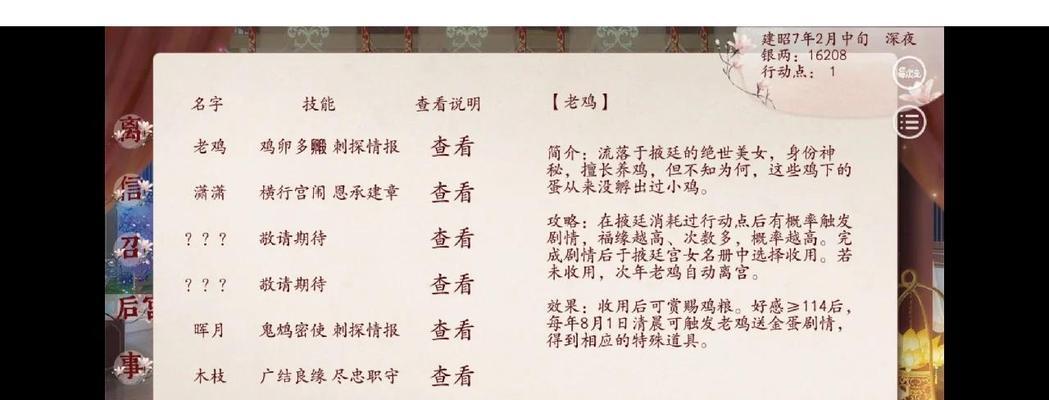 建昭7年2月中旬 深夜
银两：16208
行动点： 1
名字 技能 查看说明
老鸡 鸡卵多 刺探情报 查看
潇潇 横行宫闱 恩承建章 查看
？？？ 敬请期待 查看
？？？ 敬请期待 查看
晖月 鬼鸩密使 刺探情报 查看
木枝 广结良缘 尽忠职守 查看
【老鸡】
简介：流落于掖廷的绝世美女，身份神
秘，擅长养鸡，但不知为何，这些鸡下的
蛋从来没孵出过小鸡。
攻略：在掖廷消耗过行动点后有概率触发
剧情，福缘越高、次数多，概率越高。完
成剧情后于掖廷宫女名册中选择收用。若
未收用，次年老鸡自动离宫。
效果：收用后可赏赐鸡粮。好感≥114后，
每年8月1日清晨可触发老鸡送金蛋剧情，
得到相应的特殊道具。
离
信
召
后宫
事